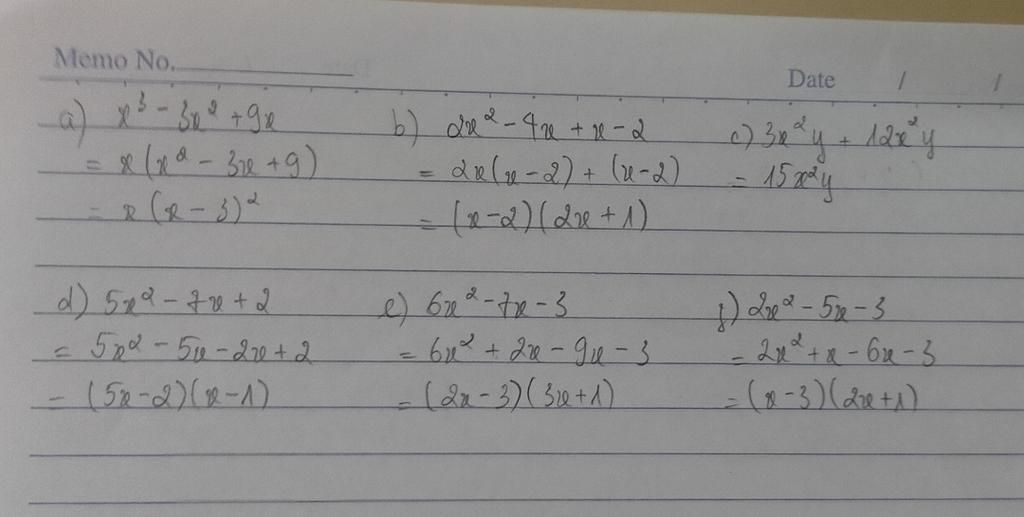 Memo No.
Date / /
a) x³ - 3x² + 9x
= x(x² - 3x + 9)
= x(x - 3)²
b) 2x² - 4x + x - 2
= 2x(x - 2) + (x - 2)
= (x - 2)(2x + 1)
c) 3x²y + 12x²y
= 15x²y
d) 5x² - 7x + 2
= 5x² - 5x - 2x + 2
= (5x - 2)(x - 1)
e) 6x² - 7x - 3
= 6x² + 2x - 9x - 3
= (2x - 3)(3x + 1)
f) 2x² - 5x - 3
= 2x² + x - 6x - 3
= (x - 3)(2x + 1)